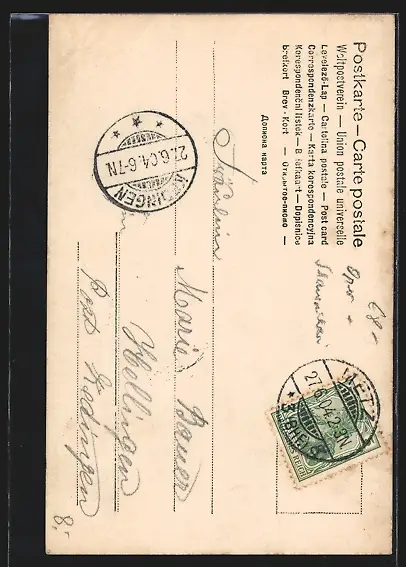 Postkarte — Carte postale
Weltpostverein — Union postale universelle
Levelező-Lap — Cartolina postale — Post card
Correspondenzkarte — Karta korespondencyjna
Korespondenční lístek — Brefkaart — Dopisnice
brefkort — Brev-Kort — Открытое письмо —
Дописна карта
METZ
27.6.04.2-3N
* 3 BHF. c
27.6.04.6-7N
Fräulein
Marie Bauer
Hollingen
Post Redingen
8,-